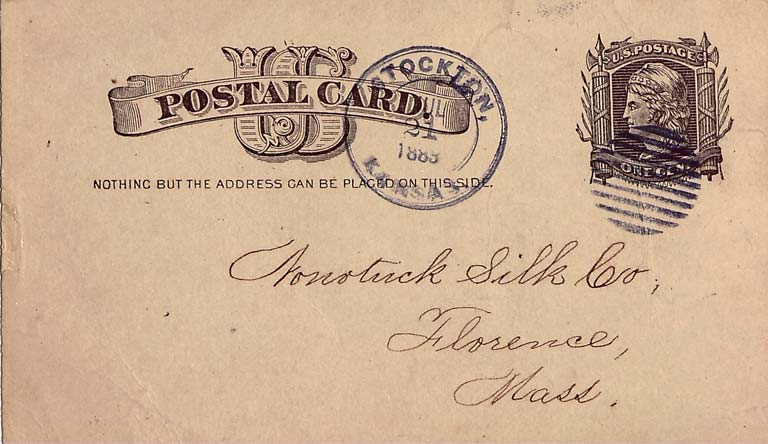 US
POSTAL CARD.
STOCKTON,
JUL
21
1883
KANSAS.
U.S. POSTAGE
ONE CENT
NOTHING BUT THE ADDRESS CAN BE PLACED ON THIS SIDE.
Nonotuck Silk Co,
Florence,
Mass.